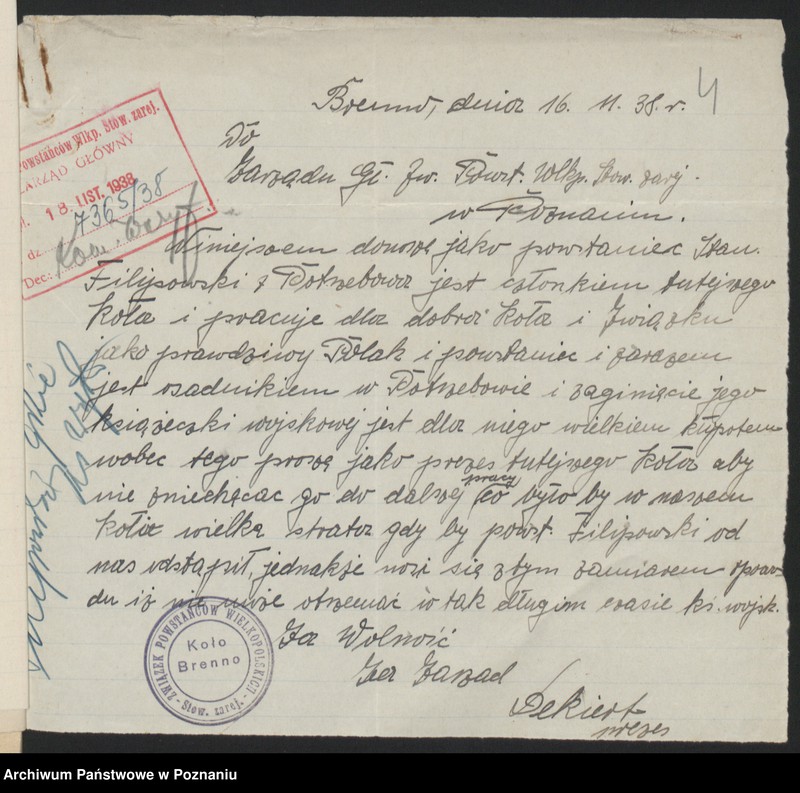 Brenno, dnia 16. 11. 38. r.
4
Powstańców Wlkp. Stow. zarej.
ZARZĄD GŁÓWNY
18 LIST. 1938
7365/38
dz
Dec:
Do
Zarządu Gł. Zw. Powst. Wlkp. Stow. zarj.
w Poznaniu.
Niniejszem donoszę jako powstaniec Stan.
Filipowski z Potrzebowa jest członkiem tutejszego
Koła i pracuje dla dobra Koła i Związku
jako prawdziwy Polak i powstaniec i zarazem
jest osadnikiem w Potrzebowie i zaginięcie jego
książeczki wojskowej jest dla niego wielkiem kłopotem
wobec tego proszę jako prezes tutejszego Koła aby
nie zniechęcac go do dalszej pracy bo było by w naszem
Kole wielką strata gdy by powst. Filipowski od
nas odstąpił, jednakże nosi się z tym zamiarem
du iż nie może otrzemać w tak długim czasie ks. wojsk.
Za Wolność
Za Zarzad
Dekiert
prezes
ZWIĄZEK POWSTAŃCÓW WIELKOPOLSKICH
Koło
Brenno
Stow. zarej.
Archiwum Państwowe w Poznaniu